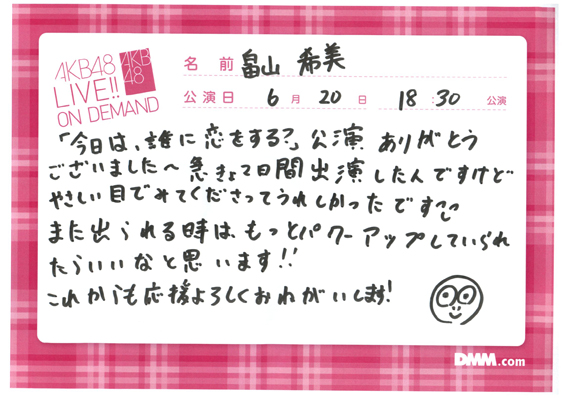 AKB48
LIVE!!
ON DEMAND
AKB
48
名前 畠山 希美
公演日 6月20日 18:30 公演
「今日は、誰に恋をする?」公演 ありがとう
ございました〜 急きょ2日間出演したんですけど
やさしい目でみてくださってうれしかったです
また出られる時は、もっとパワーアップしていられ
たらいいなと思います!!
これからも応援よろしくおねがいします!
DMM.com